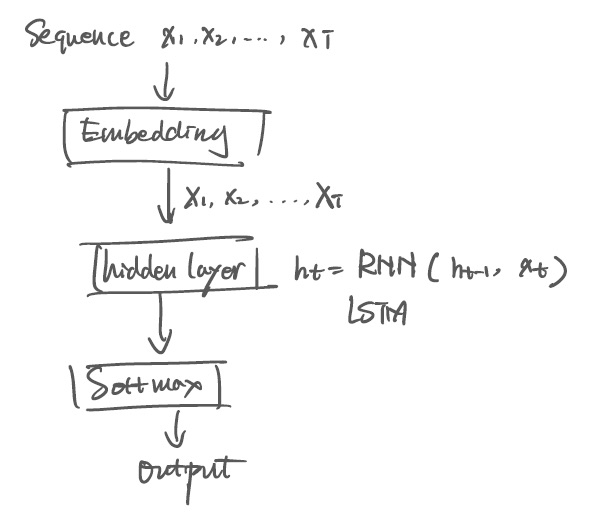 Sequence x₁, x₂, ..., x_T
Embedding
x₁, x₂, ...., x_T
hidden layer h_t = RNN ( h_t-1, x_t )
LSTM
Softmax
output